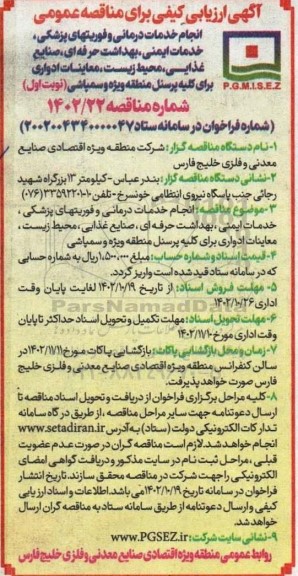 آگهی ارزیابی کیفی برای مناقصه عمومی
انجام خدمات درمانی و فوریتهای پزشکی،
خدمات ایمنی، بهداشت حرفه ای، صنایع
غذایی، محیط زیست، معاینات ادواری
برای کلیه پرسنل منطقه ویژه وسمپاشی (نوبت اول)
P.G.M.I.S.E.Z
شماره مناقصه ۱۴۰۲/۲۲
(شماره فراخوان در سامانه ستاد ۲۰۰۲۰۰۴۳۴۰۰۰۰۰۴۷)
۱-نام دستگاه مناقصه گزار: شرکت منطقه ویژه اقتصادی صنایع
معدنی و فلزی خلیج فارس
۲-نشانی دستگاه مناقصه گزار: بندرعباس-کیلومتر ۱۳ بزرگراه شهید
رجائی جنب پاسگاه نیروی انتظامی خونسرخ - تلفن ۱۰-۳۳۵۹۲۲۰۱ (۰۷۶)
۳-موضوع مناقصه: انجام خدمات درمانی و فوریتهای پزشکی،
خدمات ایمنی، بهداشت حرفه ای، صنایع غذایی، محیط زیست،
معاینات ادواری برای کلیه پرسنل منطقه ویژه و سمپاشی
۴-قیمت اسناد و شماره حساب: مبلغ ۱،۵۰۰،۰۰۰ ریال به شماره حسابی
که در سامانه ستاد قید شده است واریز گردد.
۵- مهلت فروش اسناد: از تاریخ ۱۴۰۲/۱۰/۱۹ لغایت پایان وقت
اداری ۱۴۰۲/۱۰/۲۶
۶-مهلت تحویل اسناد: مهلت تکمیل و تحویل اسناد حداکثر تا پایان
وقت اداری مورخ ۱۴۰۲/۱۱/۱۰
۷- زمان و محل بازگشایی پاکات: بازگشایی پاکات مورخ ۱۴۰۲/۱۱/۱۱ در
سالن کنفرانس منطقه ویژه اقتصادی صنایع معدنی و فلزی خلیج
فارس صورت خواهد پذیرفت.
۸- کلیه مراحل برگزاری فراخوان از دریافت و تحویل اسناد مناقصه تا
ارسال دعوتنامه جهت سایر مراحل مناقصه، از طریق درگاه سامانه
تدارکات الکترونیکی دولت (ستاد) به آدرس www.setadiran.ir
انجام خواهد شد. لازم است مناقصه گران در صورت عدم عضویت
قبلی، مراحل ثبت نام در سایت مذکور و دریافت گواهی امضای
الکترونیکی را جهت شرکت در مناقصه محقق سازند. تاریخ انتشار
فراخوان در سامانه تاریخ ۱۴۰۲/۱۰/۱۹ می باشد. اطلاعات و اسناد ارزیابی
کیفی و ارسال دعوتنامه از طریق سامانه ستاد به مناقصه گران ارسال
خواهد شد.
۹-نشانی سایت شرکت: www.PGSEZ.ir
روابط عمومی منطقه ویژه اقتصادی صنایع معدنی و فلزی خلیج فارس